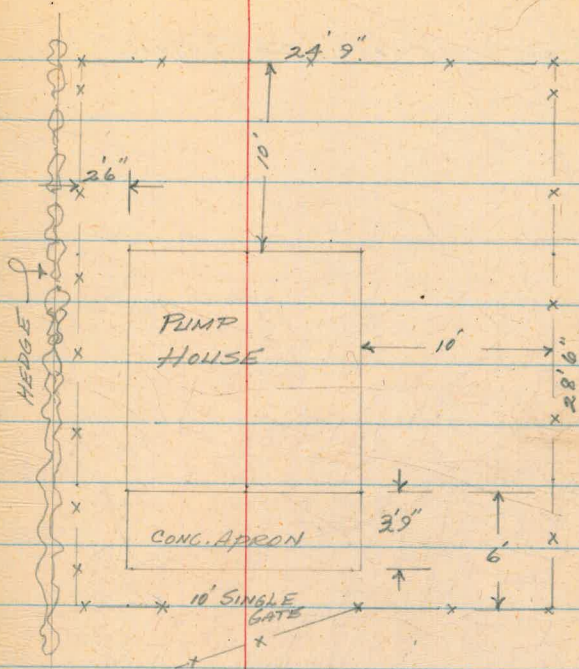 24' 9"
10'
2'6"
HEDGE
PUMP
HOUSE
10'
28'6"
3'9"
6'
CONC. APRON
10' SINGLE
GATE